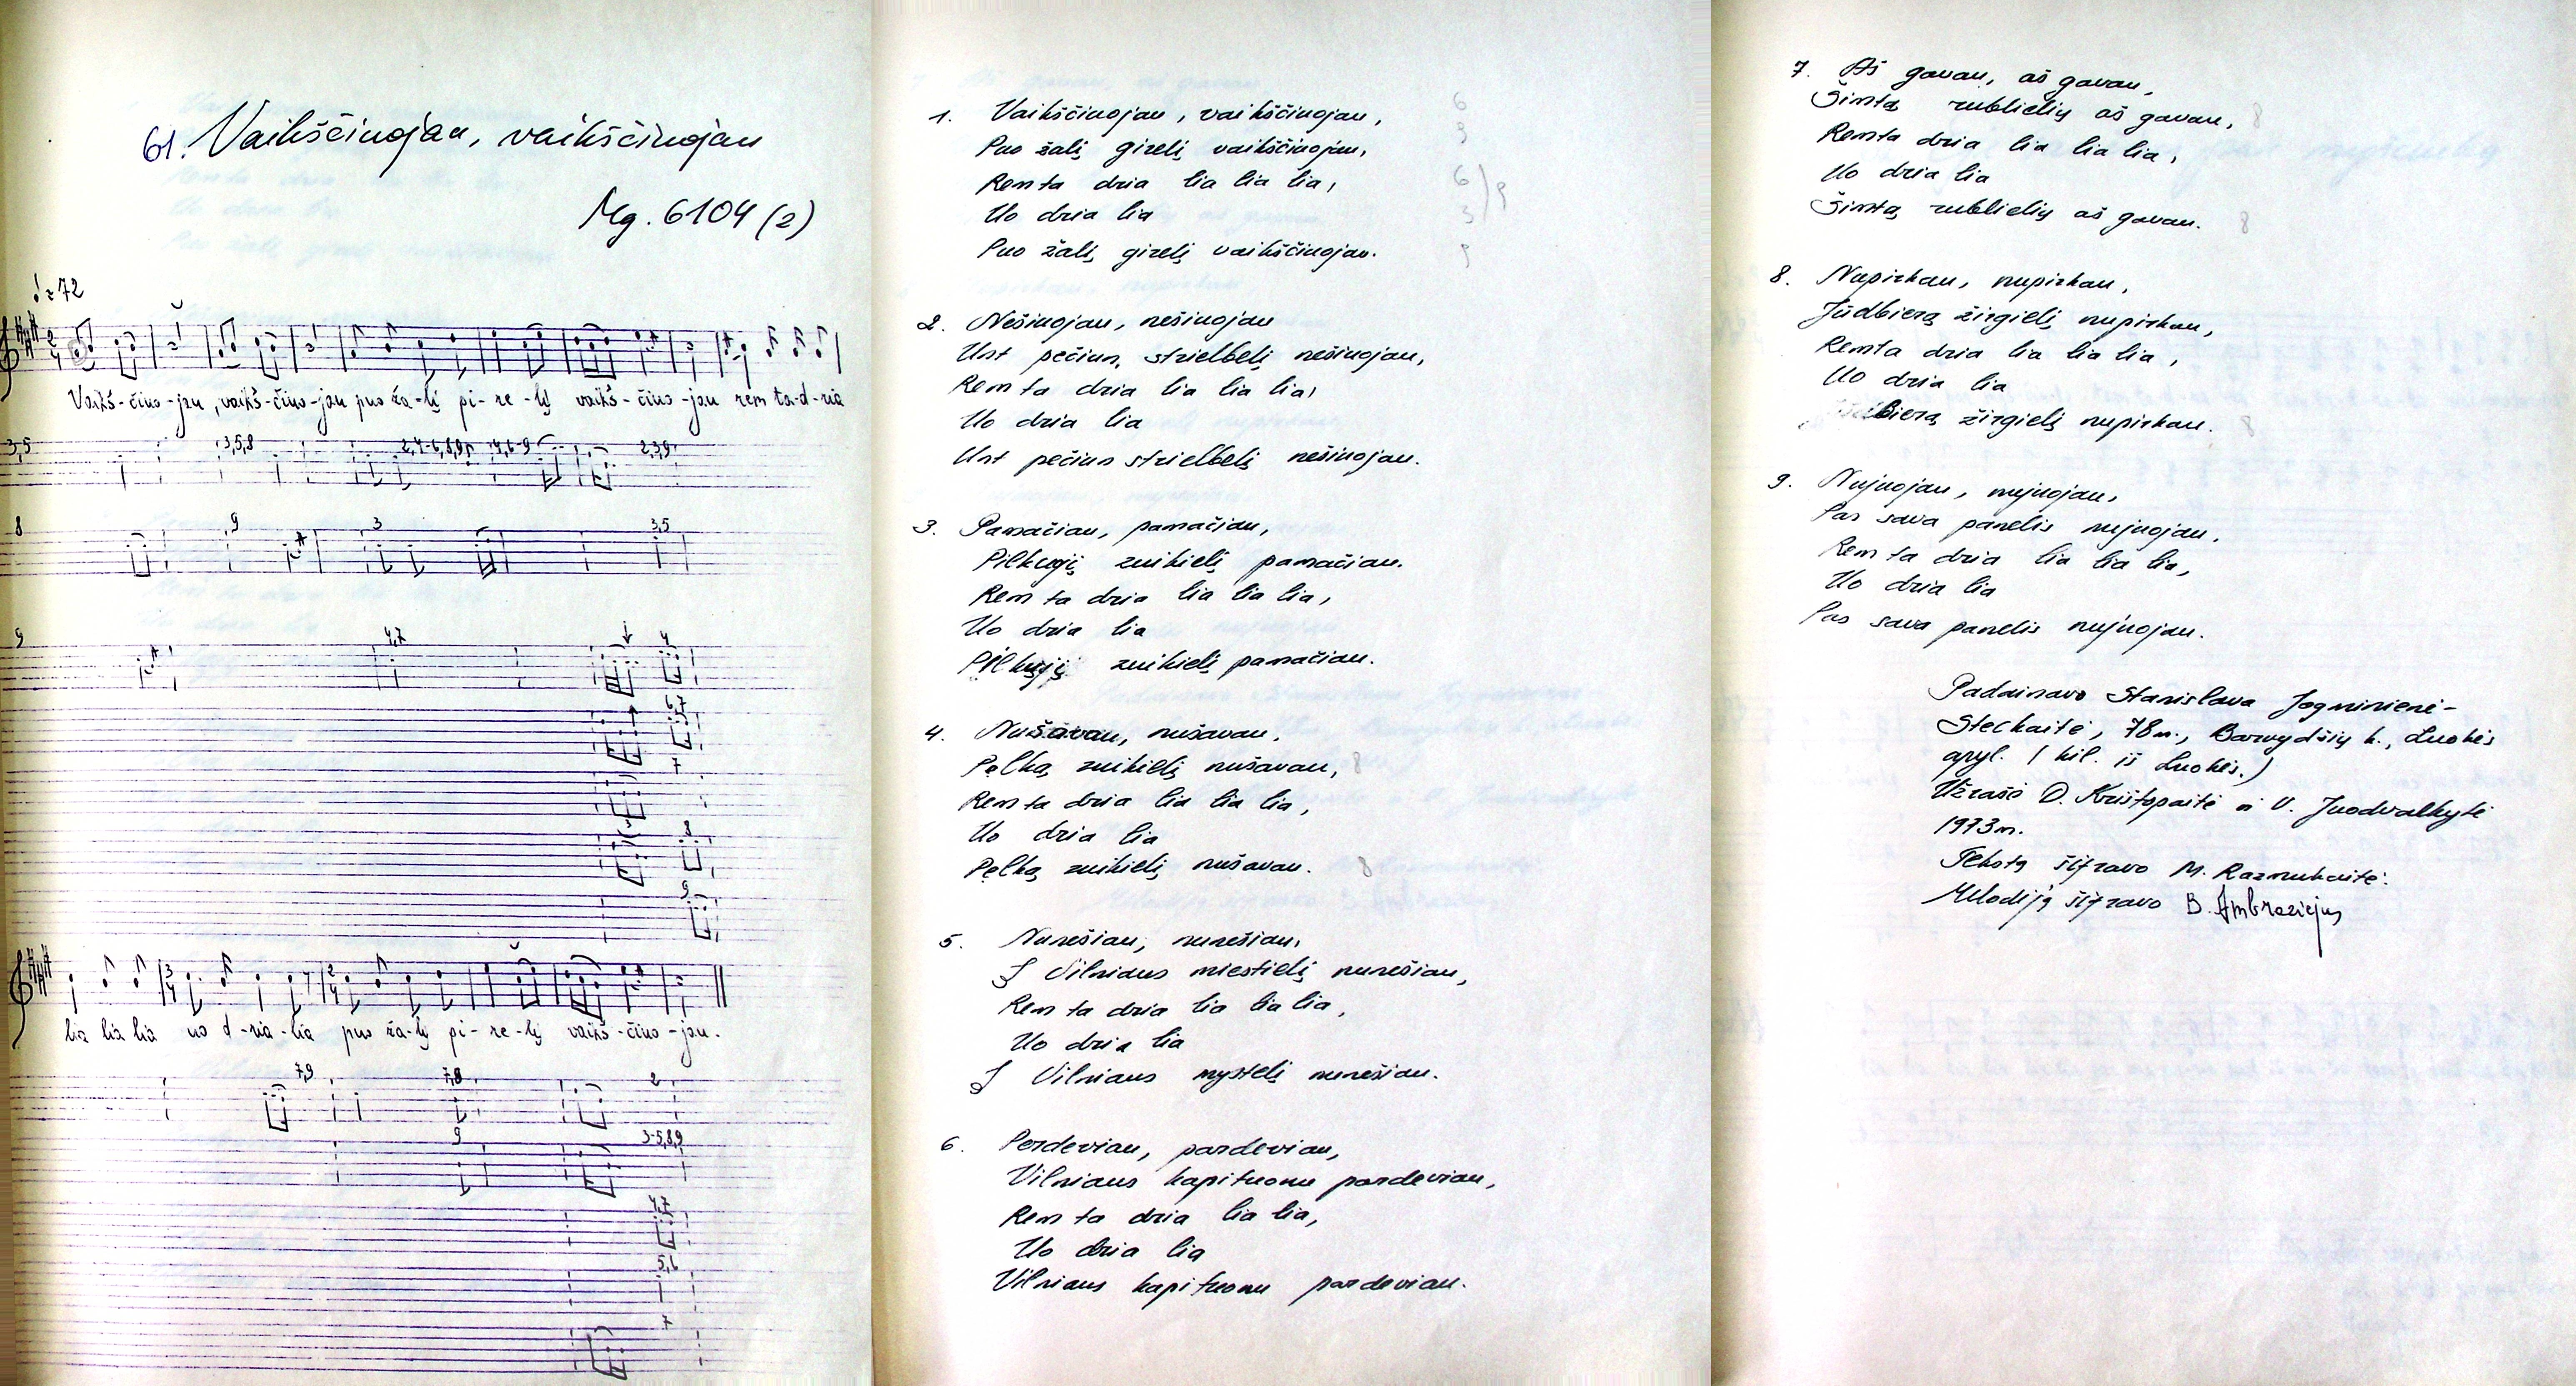 61. Vaikščiuojau, vaikščiuojau
Mg. 6104 (2)
♩= 72
Vaikš-čiuo-jau, vaikš-čiuo-jau puo ža-lį pi-re-lį vaikš-čiuo-jau rem ta-d-ria
3,5 3,5,8 2,4-6,8,9 4,6-9 2,3,9
8 9 3 3,5
9 4,7 4
6,7
7
3 8
9
lia lia lia uo d-ria-lia puo ža-lį pi-re-lį vaikš-čiuo-jau.
7,9 7,8 2
9 3-5,8,9
4,7
5,6
7
1. Vaikščiuojau, vaikščiuojau, 6
Puo žalį girelį vaikščiuojau, 9
Rem ta dria lia lia lia, 6
Uo dria lia 3
Puo žalį girelį vaikščiuojau.
2. Nešiuojau, nešiuojau
Unt pečiun strielbelį nešiuojau,
Rem ta dria lia lia lia,
Uo dria lia
Unt pečiun strielbelį nešiuojau.
3. Pamačiau, pamačiau,
Pilkuojį zuikielį pamačiau.
Rem ta dria lia lia lia,
Uo dria lia
Pilkujį zuikielį pamačiau.
4. Nušavau, nušavau,
Pelką zuikielį nušavau, 8
Rem ta dria lia lia lia,
Uo dria lia
Pelką zuikielį nušavau. 8
5. Nunešiau, nunešiau,
Į Vilniaus miestielį nunešiau,
Rem ta dria lia lia lia,
Uo dria lia
Į Vilniaus mystelį nunešiau.
6. Perdeviau, pardeviau,
Vilniaus kapituonu pardeviau,
Rem ta dria lia lia,
Uo dria lia
Vilniaus kapituonu pardeviau.
7. Aš gavau, aš gavau,
Šimta rublielių aš gavau, 8
Remta dria lia lia lia,
Uo dria lia
Šimtą rublielių aš gavau. 8
8. Nupirkau, nupirkau,
Jūdbierą žirgielį nupirkau,
Remta dria lia lia lia,
Uo dria lia
Jūdbierą žirgielį nupirkau. 8
9. Nujuojau, nujuojau,
Pas sava panelis nujuojau.
Rem ta dria lia lia lia,
Uo dria lia
Pas sava panelis nujuojau.
Padainavo Stanislava Jogminienė-
Steckaitė, 78 m., Barvydžių k., Luokės
apyl. (kil. iš Luokės.)
Užrašė D. Krištopaitė ir V. Juodvalkytė
1973 m.
Tekstą šifravo M. Razmukaitė.
Melodiją šifravo B. Ambraziejus